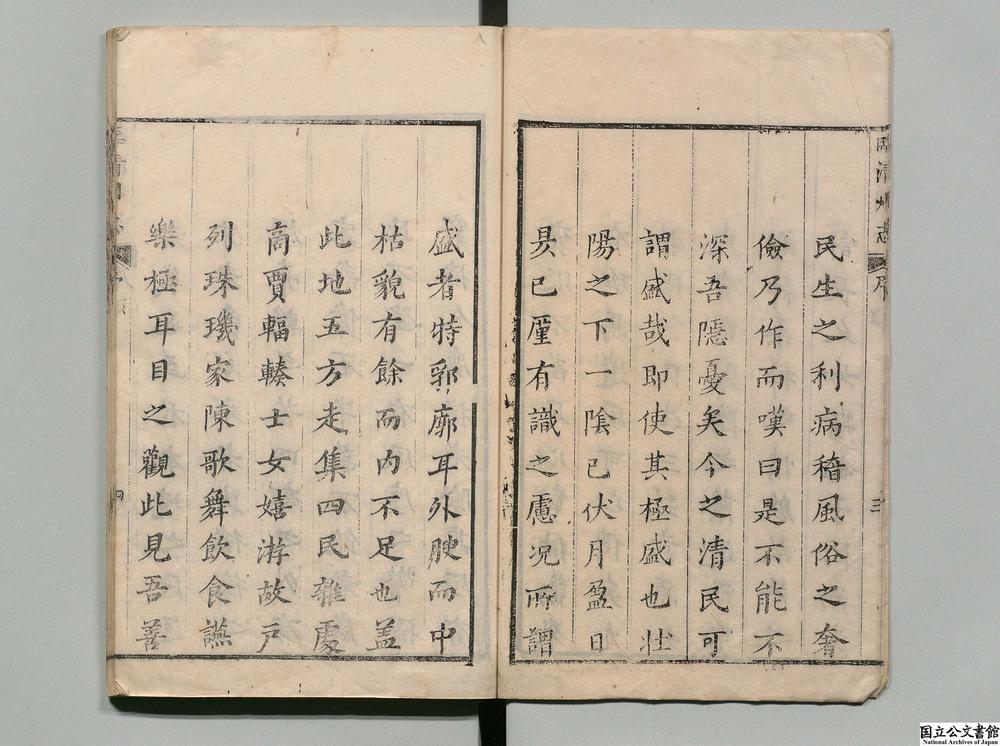 臨清州志 序 三
民生之利病稽風俗之奢
儉乃作而嘆曰是不能不
深吾隱憂矣今之清民可
謂盛哉即使其極盛也壯
陽之下一陰已伏月盈日
昃已厪有識之慮况所謂
盛者特郛廓耳外腴而中
枯貌有餘而内不足也盖
此地五方走集四民雜處
商賈輻輳士女嬉游故户
列珠璣家陳歌舞飲食讌
樂極耳目之觀此見吾善
四
国立公文書館
National Archives of Japan